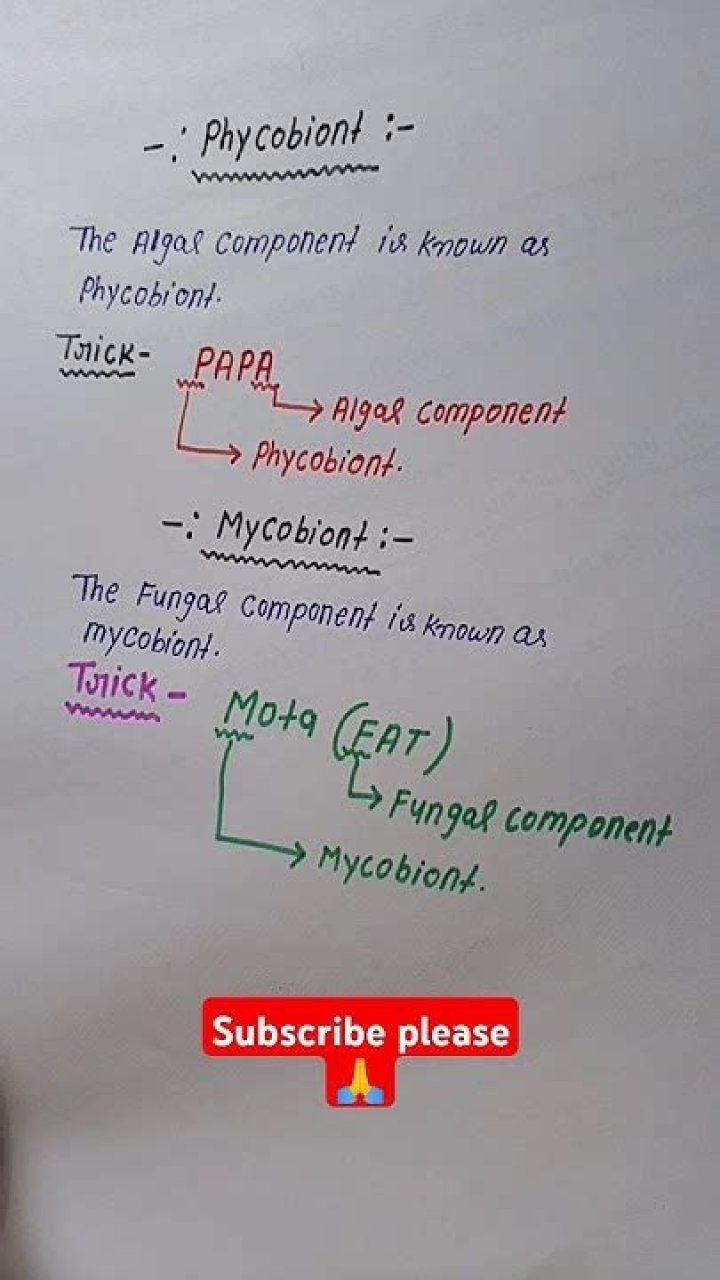 -: Phycobiont :-
The Algal component is known as
Phycobiont.
Trick- PAPA
Algal component
Phycobiont.
-: Mycobiont :-
The Fungal component is known as
mycobiont.
Trick - Mota (FAT)
Fungal component
Mycobiont.
Subscribe please
🙏